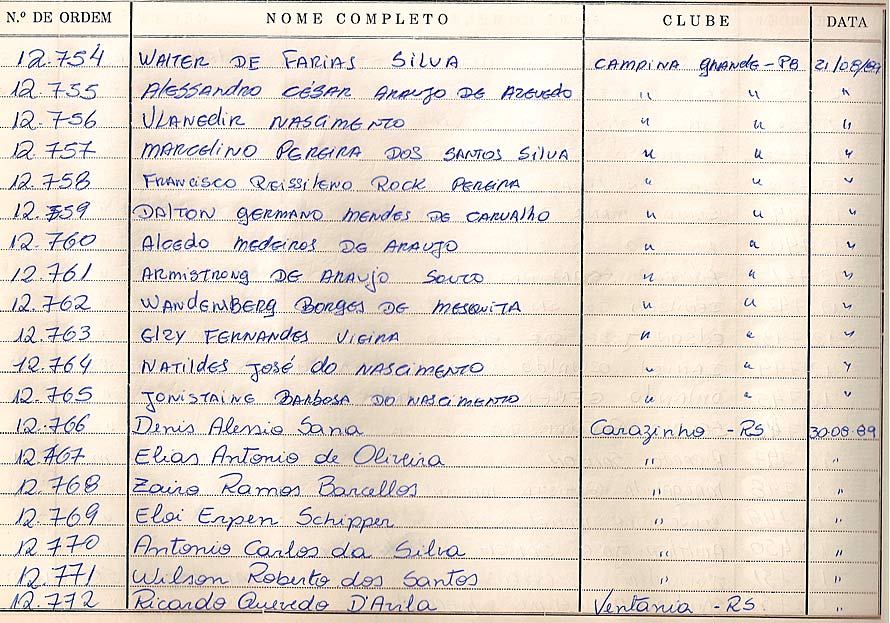 N.º DE ORDEM NOME COMPLETO CLUBE DATA
12.754 WALTER DE FARIAS SILVA CAMPINA GRANDE - PB 21/08/89
12.755 ALESSANDRO CÉSAR ARAUJO DE AZEVEDO " " "
12.756 VLANEDIR NASCIMENTO " " "
12.757 MARCELINO PEREIRA DOS SANTOS SILVA " " "
12.758 FRANCISCO REISSILENO ROCK PEREIRA " " "
12.759 DALTON GERMANO MENDES DE CARVALHO " " "
12.760 ALCEDO MEDEIROS DE ARAUJO " " "
12.761 ARMISTRONG DE ARAUJO SOUTO " " "
12.762 WANDEMBERG BORGES DE MESQUITA " " "
12.763 GIZY FERNANDES VIEIRA " " "
12.764 NATILDES JOSÉ do NASCIMENTO " " "
12.765 JONISTAINE BARBOSA DO NASCIMENTO " " "
12.766 Denis Alessio Sana Carazinho - RS 30.08.89
12.767 Elias Antonio de Oliveira " "
12.768 Zairo Ramos Barcellos " "
12.769 Eloi Erpen Schipper " "
12.770 Antonio Carlos da Silva " "
12.771 Wilson Roberto dos Santos " "
12.772 Ricardo Quevedo D'Avila Ventania - RS. "